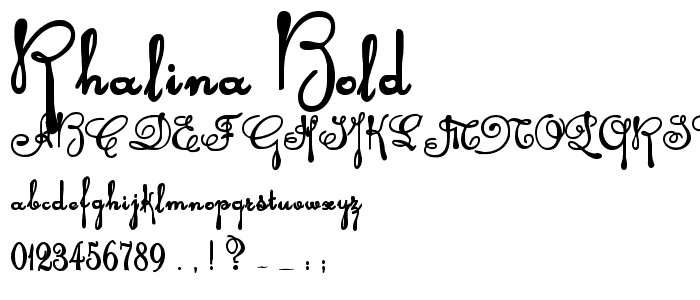 Rhalina Bold
ABCDEFGHIJKLMNOPQRST
abcdefghijklmnopqrstuvwxyz
0123456789 .,!? - _ : ;